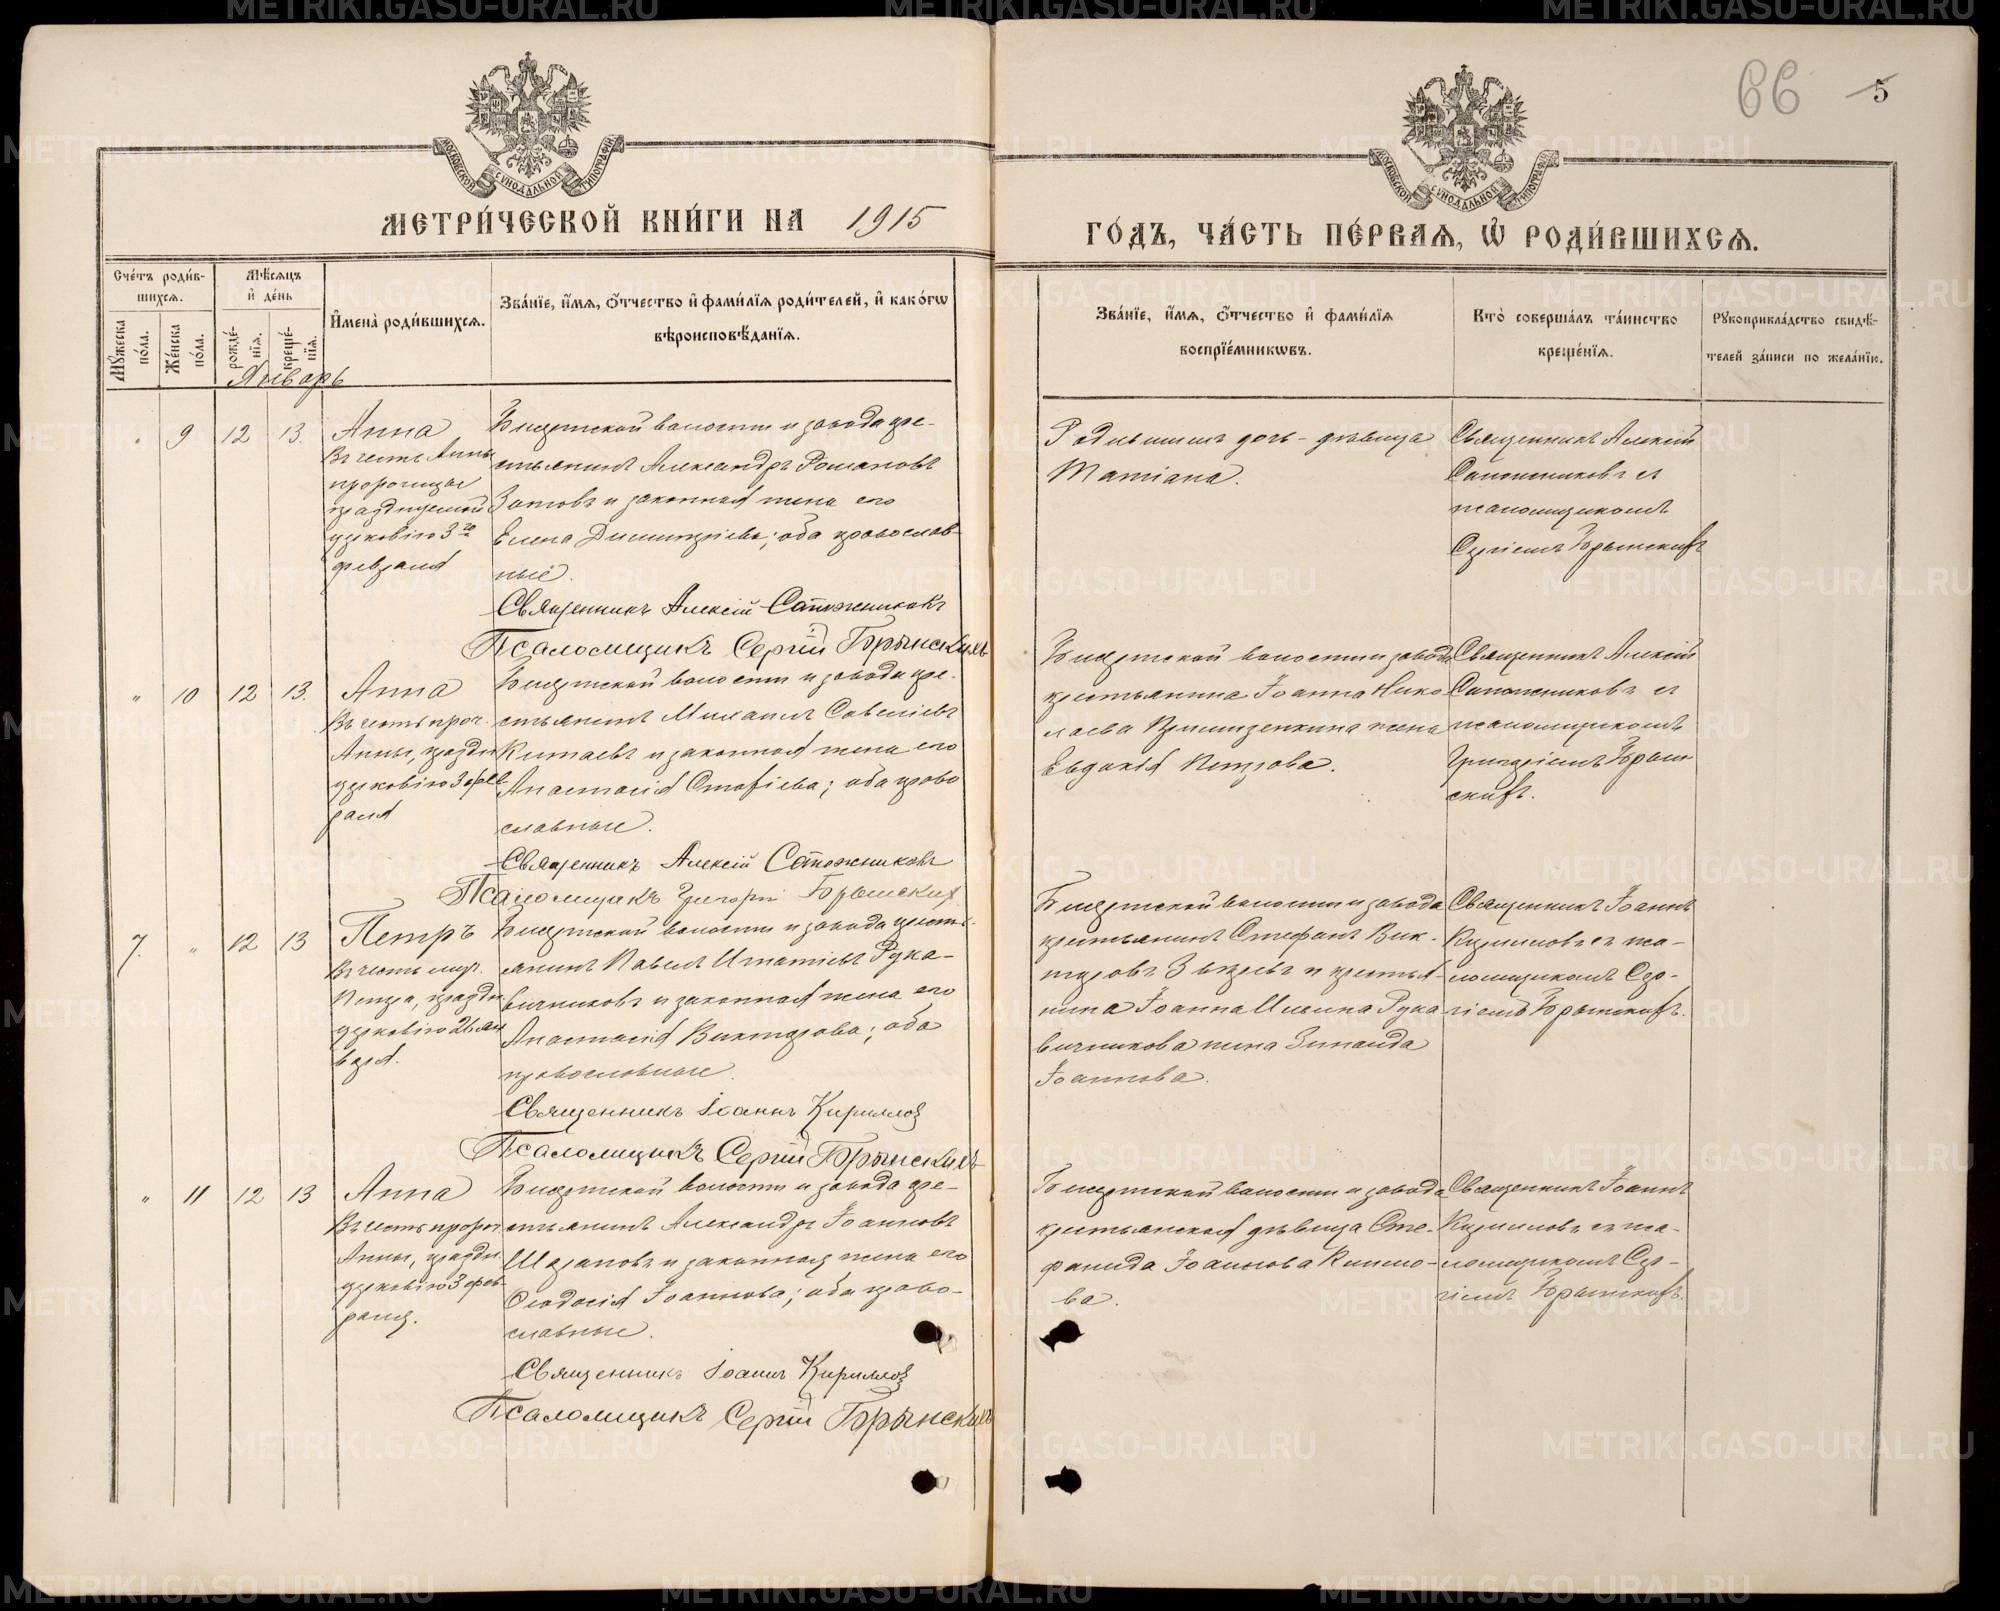 66 5
МОСКОВСКОЙ СѴНОДАЛЬНОЙ ТИПОГРАФІИ
МОСКОВСКОЙ СѴНОДАЛЬНОЙ ТИПОГРАФІИ
МЕТРИ́ЧЕСКОЙ КНИ́ГИ НА 1915
ГО́ДЪ, ЧА́СТЬ ПЕ́РВАЯ, Ѡ҆ РОДИ́ВШИХСЯ.
Сче́тъ роди́в-
шихся.
Мꙋ́жеска по́ла.
Же́нска по́ла.
Мѣ́сяцъ
и҆ де́нь
рожде́-
нїя.
креще́-
нїя.
И҆мена̀ роди́вшихся.
Зва́нїе, и҆́мя, ѻ҆́тчество и҆ фами́лїя роди́телей, и҆ како́гѡ
вѣроисповѣ́данїя.
Зва́нїе, и҆́мя, ѻ҆́тчество и҆ фами́лїя
воспрїе́мникѡвъ.
Кто̀ соверша́лъ та́инство
креще́нїя.
Рꙋкоприкла́дство свидѣ́-
телей за́писи по жела́нїю.
Январь
9 12 13.
Анна
Въ честь Анны
пророчицы
празднуемой
церковію 3го
февраля
Бисертской волости и завода кре-
стьянинъ Александръ Романовъ
Зотовъ и законная жена его
Елена Димитріева; оба православ-
ные.
Священникъ Алексій Сапожниковъ
Псаломщикъ Сергій Брынскихъ
Родившимъ дочь - дѣвица
Татіана.
Священникъ Алексій
Сапожниковъ съ
псаломщикомъ
Сергіемъ Брынскихъ
" 10 12 13.
Анна
Въ честь прор.
Анны, праздн.
церковію 3 фев-
раля
Бисертской волости и завода кре-
стьянинъ Михаилъ Савеліевъ
Китаевъ и законная жена его
Анастасія; оба право
славные.
Священникъ Алексій Сапожниковъ
Псаломщикъ Григорій Брынских
Бисертской волости и завода
крестьянина Іоанна Нико-
лаева жена
Евдокія Петрова.
Священникъ Алексій
Сапожниковъ съ
псаломщикомъ
Григоріемъ Брын-
скихъ.
7. " 12 13
Петръ
Въ честь
Петра, праздн.
церковію 26 ян
варя.
Бисертской волости и завода кресть-
янинъ Павелъ Игнатіевъ Рука-
вичниковъ и законная жена его
Анастасія Викторова; оба
православные.
Священникъ Іоаннъ Кириллов
Псаломщикъ Сергій Брынскихъ
Бисертской волости и завода
крестьянинъ Стефанъ Вик-
торовъ Звѣревъ и крестья-
нина Іоанна Ильина Рука
вичникова жена Зинаида
Іоаннова.
Священникъ Іоаннъ
Кирилловъ съ пса-
ломщикомъ Сер-
гіемъ Брынскихъ.
" 11 12 13
Анна
Въ честь пророч
Анны, праздн.
церковію 3 фев-
раля.
Бисертской волости и завода кре-
стьянинъ Александръ Іоанновъ
Шарановъ и законная жена его
Ѳеодосія Іоаннова; оба право-
славные.
Священникъ Іоаннъ Кириллов
Псаломщикъ Сергій Брынскихъ
Бисертской волости и завода
крестьянская дѣвица Сте-
фанида Іоаннова
ва.
Священникъ Іоаннъ
Кирилловъ съ пса-
ломщикомъ Сер-
гіемъ Брынскихъ.
METRIKI.GASO-URAL.RU